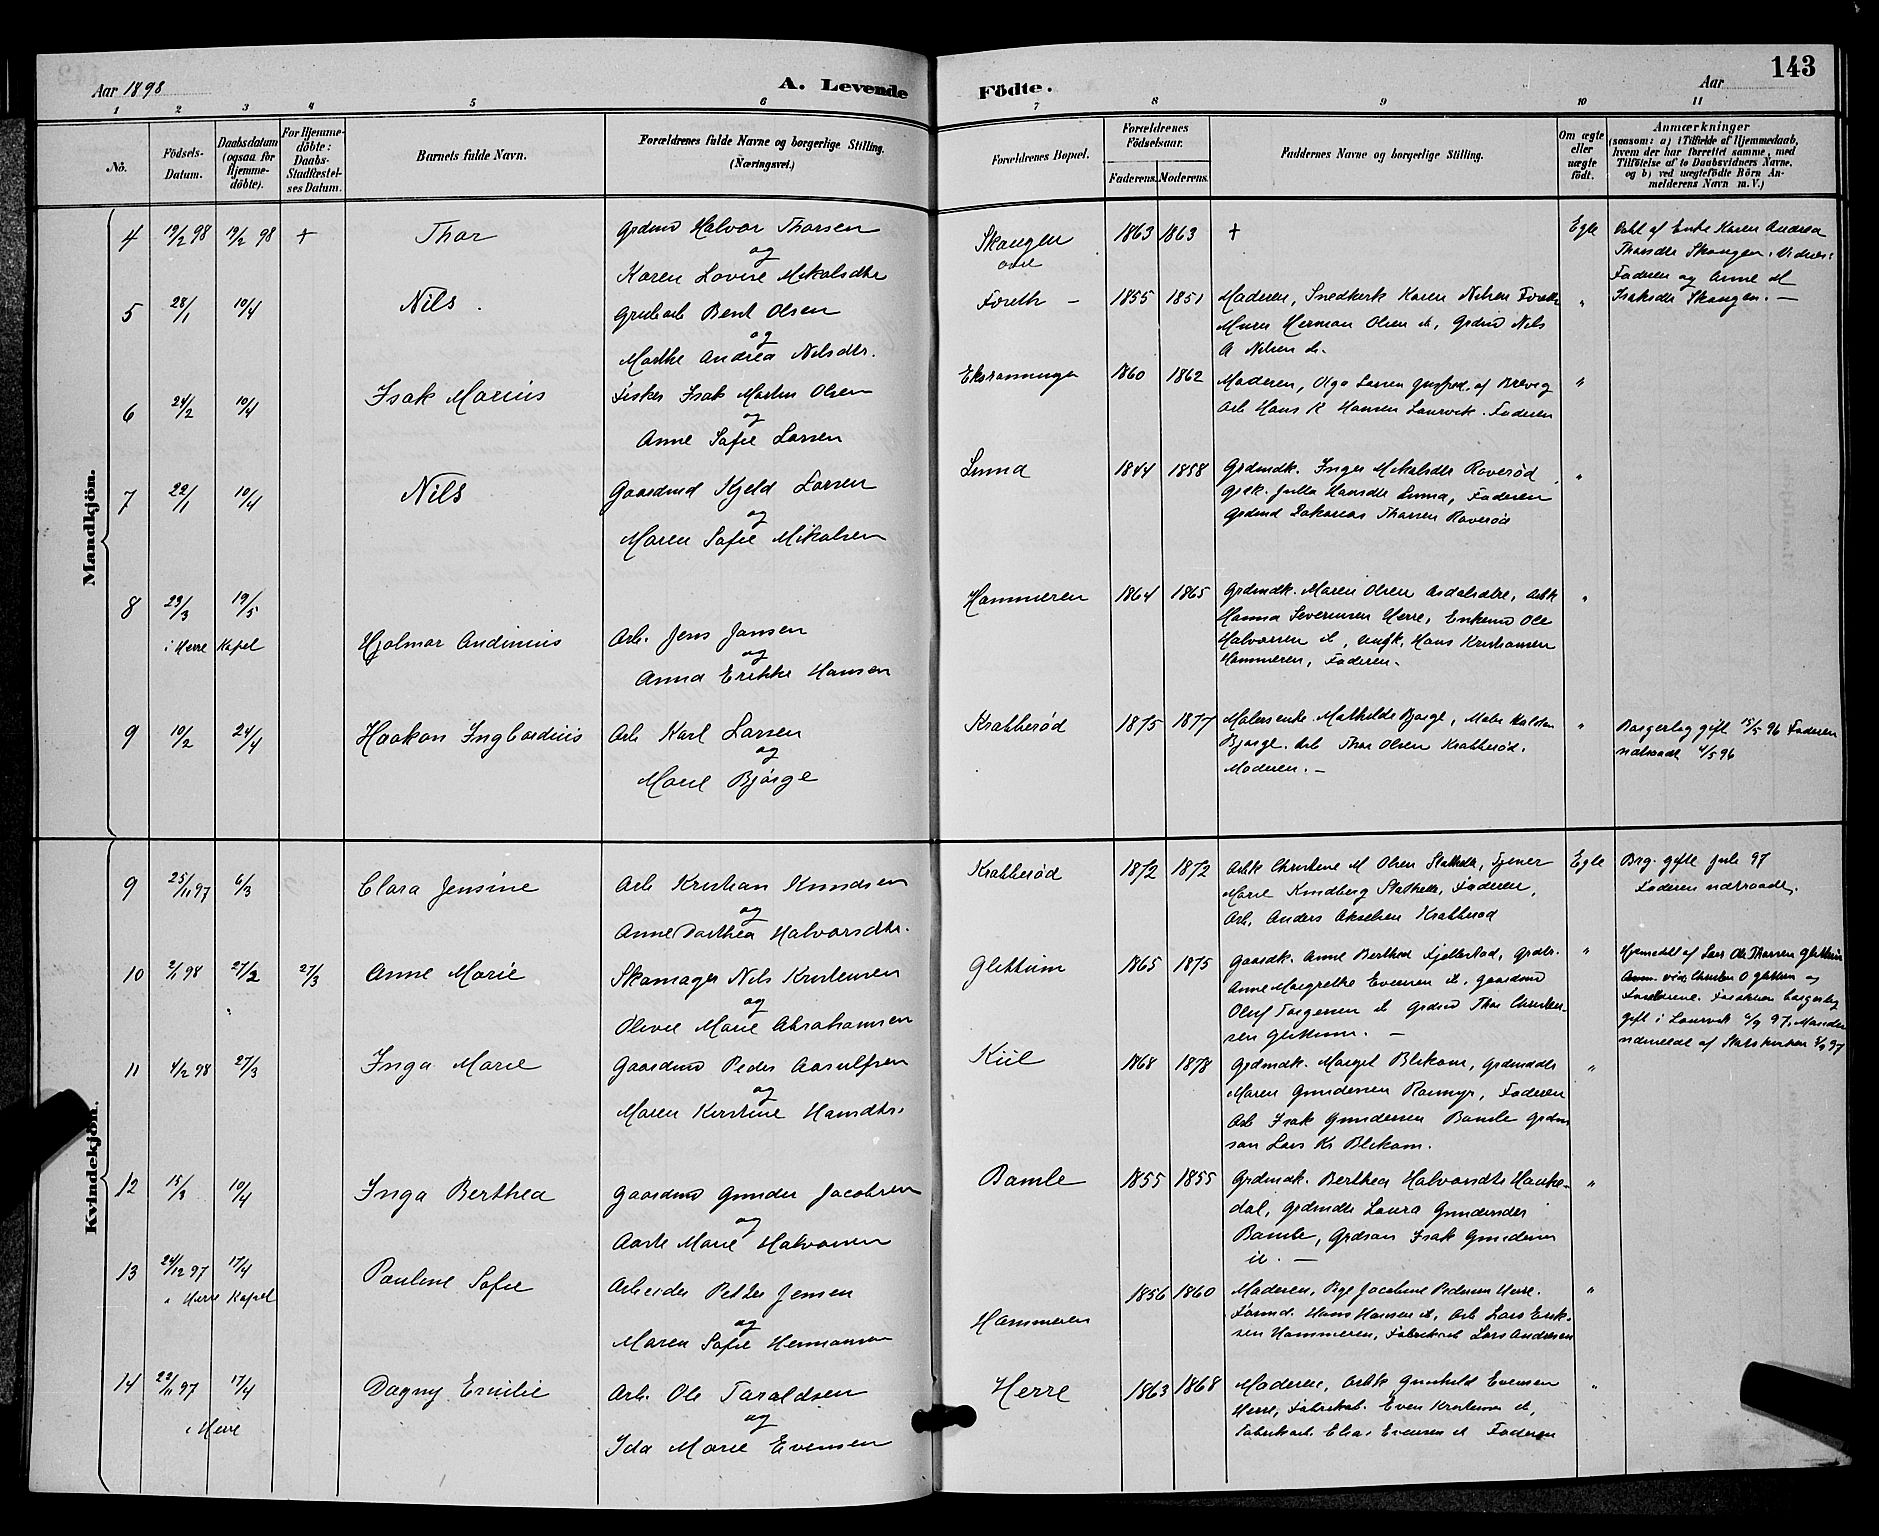 143
Aar 1898
A. Levende
Födte.
Aar
1 2 3 4 5 6 7 8 9 10 11
No.
Födsels-Datum.
Daabsdatum (ogsaa for Hjemme-döbte).
For Hjemme-döbte: Daabs-Stadfæstel-ses Datum.
Barnets fulde Navn.
Forældrenes fulde Navne og borgerlige Stilling. (Næringsvei.)
Forældrenes Bopæl.
Forældrenes Födselsaar.
Faderens. Moderens.
Faddernes Navne og borgerlige Stilling.
Om ægte eller uægte födt.
Anmærkninger
(saasom: a) i Tilfælde af Hjemmedaab,
hvem der har forrettet samme, med
Tilföielse af to Daabsvidners Navne.
og b) ved uægtefödte Börn An-
melderens Navn m. V.)
Mandkjön.
4 19/2 98 19/2 98 + Thor
Grdmd Halvor Thorsen
og
Karen Lovise Mikalsdtr
Skougen
1863 1863 + Egte
Döbt af Enke Karen Andrea
Thorsdtr Skougen. Vidner:
Faderen og Anne M
Isaksdtr Skougen. —
5 28/1 10/4 Nils.
Grubarb Bent Olsen
og
Marthe Andrea Nilsdtr.
Foreth —
1855 1851
Moderen, Snedkerk Karen Nilsen Foreth
Murer Herman Olsen it, Grdmd Nils
A Nilsen it.
"
6 24/2 10/4 Isak Marius
Fisker Isak Martin Olsen
og
Anne Sofie Larsen
1860 1862
Moderen, Olga Larsen af Brevig
Arb Hans K Hansen Laurvik. Faderen
"
7 22/1 10/4 Nils
Gaardmd Kjeld Larsen
og
Maren Sofie Mikalsen
Lunna
1844 1858
Grdmdk. Inger Mikalsdtr Roverød
Julla Hansdtr Lunna, Faderen
Grdmd Zakarias Thorsen Roverød
"
8 23/3 19/5
i Herre Kapel
Hjalmar Andinius
Arb. Jens Jansen
og
Anna Erikke Hansen
Hammeren
1864 1865
Grdmdk. Maren Olsen Aasdalsdtre, Arbk
Hanna Severinsen Herre, Enkemd Ole
Halvorsen it, Ungk. Hans Kristiansen
Hammeren, Faderen.
"
9 10/2 24/4 Haakon Ingbardius
Arb Karl Larsen
og
Marie Bjørge
Krabberød
1875 1877
Malersenke Mathilde Bjørge, Maler Halvdan
Bjørge. Arb Thor Olsen Krabberød.
Moderen. —
"
Borgerlig gift 15/5 96 Faderen
udtraadt 4/5 96
Kvindekjön.
9 25/11 97 6/3 Clara Jensine
Arb Kristian Knudsen
og
Anne Dorthea Halvorsdtr.
Krabberød
1872 1872
Arbk Christine M Olsen Stathelle, Tjener
Marie Kindberg Stathelle, Faderen,
Arb, Anders Akselsen Krabberød
Egte
Brg. gifte Juli 97
Faderen udtraadt.
10 2/1 98 27/3 27/3 Anne Marie
Skomager Nils Kristensen
og
Olivie Marie Abrahamsen
Glittum
1865 1875
Gaardk. Anne Berthea Fjellestad, Grdtr.
Anne Margrethe Evensen it, Gaardmd
Oluf Torgersen it Grdmd Thor Christen-
sen Glittum. —
"
Hjemdöbt af Lars Ole Thorsen Glittum
gift i Laurvik 6/9 97. Manden
udmeldt af Statskirken 4/9 97
11 4/2 98 27/3 Inga Marie
Gaardmd Peder Aasulfsen
og
Maren Kirstine Hansdtr.
Kiil
1868 1878
Grdmdk. Marget Blekom, Grdmddtr
Maren Gundersen Rosmyr, Faderen
Arb Isak Gundersen Bamle Grdm
søn Lars Kr Blekom.
"
12 15/3 10/4 Inga Berthea
Gaardmd Gunder Jacobsen
og
Aaste Marie Halvorsen
Bamle
1855 1855
Grdmdk. Berthea Halvorsdtr Hauke-
dal, Grdmdtr Laura Gundersdtr
Bamle, Grdsøn Isak Gundersen
it. —
"
13 24/12 97 17/4
i Herre Kapel
Pauline Sofie
Arbeider Petter Jensen
og
Maren Sofie Hermansen
Hammeren
1856 1860
Moderen, Pige Jacobine Pedersen Herre.
Formd. Hans Hansen it, Arb Lars Erik-
sen Hammeren, Fabrikarb Lars Andresen
"
14 22/11 97 17/4
i Herre
Dagny Emilie
Arb. Ole Taraldsen
og
Ida Marie Evensen
Herre
1863 1868
Moderen, Arbk Gunhild Evensen
Herre, Fabrikarb. Even Kristensen it,
Fabrikarb. Elias Evensen it Faderen
"